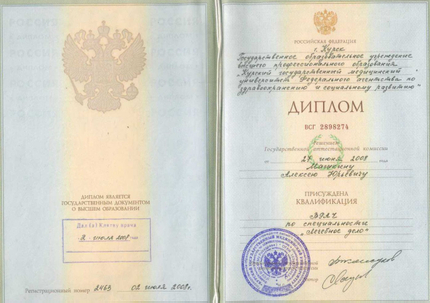 ДИПЛОМ ЯВЛЯЕТСЯ
ГОСУДАРСТВЕННЫМ ДОКУМЕНТОМ
О ВЫСШЕМ ОБРАЗОВАНИИ
врача
июля 2008
Регистрационный номер 2463 02 июля 2008г.
РОССИЙСКАЯ ФЕДЕРАЦИЯ
г. Курск
Государственное образовательное учреждение
высшего профессионального образования
"Курский государственный медицинский
университет Федерального агентства по
здравоохранению и социальному развитию"
ДИПЛОМ
ВСГ 2898274
Решением
Государственной аттестационной комиссии
от 27 июня 2008
Алексею Юрьевичу
ПРИСУЖДЕНА
КВАЛИФИКАЦИЯ
ВРАЧ
по специальности
"Лечебное дело"